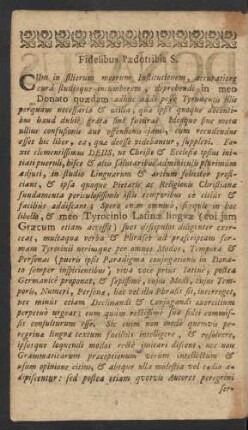 Fidelibus Pædotribis S.
CUm in filiorum meorum institutionem, accuratiore
cura studioque incumberem, deprehendi in meo
Donato quædam adhuc addi posse Tyronibus illis
perquam necessaria & utilia, quæ ipsis quoque docenti-
bus haud dubiè grata sint futura. Idque sine metu
ullius confusionis aut offensionis jam, cum recudendus
esset hic liber, ea, quæ deesse videbantur, supplevi. Fa-
xit clementissimus DEUS, ut Christo & Ecclesiæ ipsius ini-
tiati pueruli, hisce & aliis salutaribus adminiculis plurimum
adjuti, in studio Linguarum & artium feliciter profi-
ciant, & ipsa quoque Pietatis ac Religionis Christianæ
fundamenta perutilissimis istis compendiis eò citius &
facilius addiscant. Opera etiam omnino, ut quia in hoc
libello, & meo Tyrocinio Latinæ linguæ (cui jam
Græcum etiam accessit) suos discipulos diligenter exer-
ceat, multaque verba & Phrases ad præscriptam for-
mam Tyrocinii utriusque per omnes Modos, Tempora &
Personas (pueris ipsis Paradigma conjugationis in Dona-
to semper inspicientibus) viva voce prius latinè, postea
Germanicè proponat, & sæpissimè, cujus Modi, cujus Tem-
poris, Numeri, Personæ, hæc vel illa Phrasis sit, interroget,
nec minus etiam Declinandi & Conjugandi exercitium
perpetuò urgeat: cum quàm rectissimè sua fidei commis-
sis consulturum esse. Sic enim non modo quemvis pe-
regrinæ linguæ textum facilius intelligere, & resolvere,
ipsosque loquendi modos rectè imitari discent, nec non
Grammaticarum præceptionum verum intellectum &
usum opinione citius, & absque ulla molestia vel tædio a-
dipiscentur: sed postea etiam quosvis Autores peregrini
ser-